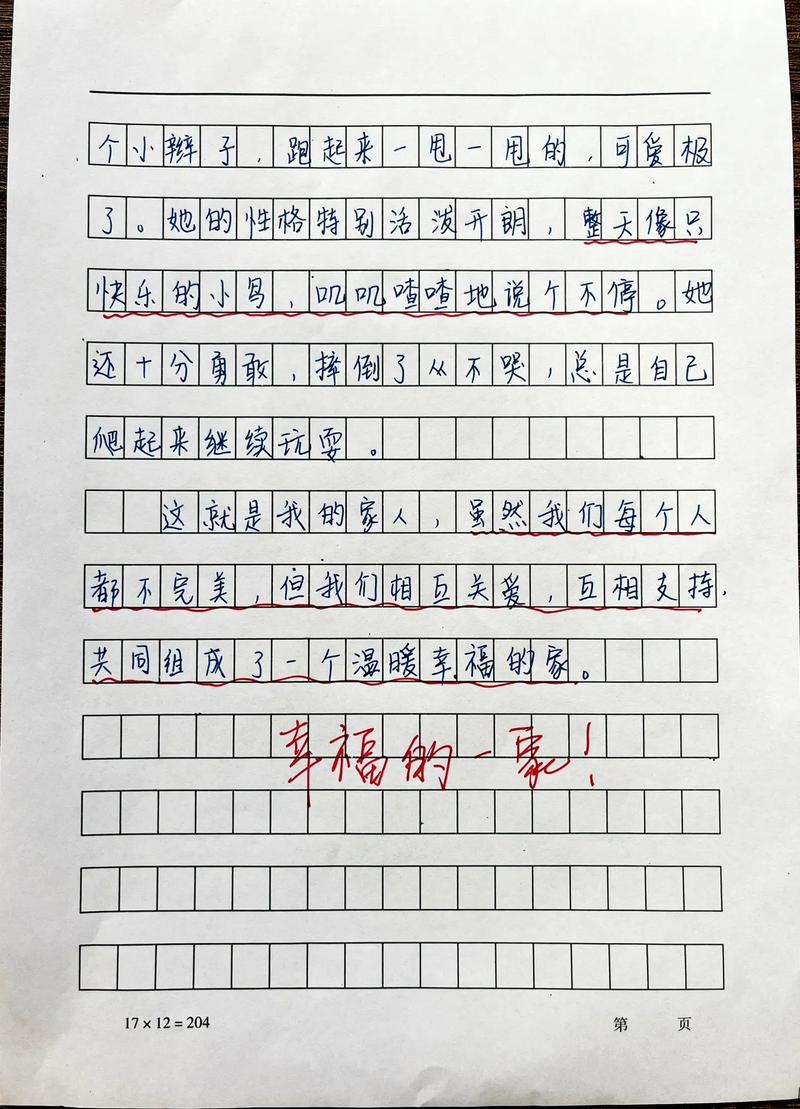 个小辫子，跑起来一甩一甩的，可爱极
了。她的性格特别活泼开朗，整天像只
快乐的小鸟，叽叽喳喳地说个不停。她
还十分勇敢，摔倒了从不哭，总是自己
爬起来继续玩耍。
这就是我的家人，虽然我们每个人
都不完美，但我们相互关爱，互相支持，
共同组成了一个温暖幸福的家。
幸福的一家！
17×12=204 第 页